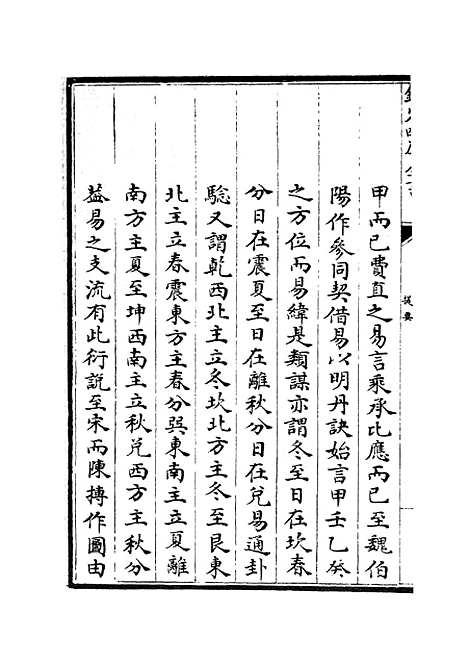 甲而已費直之易言乘承比應而已至魏伯
陽作參同契借易以明丹訣始言甲壬乙癸
之方位而易緯是類謀亦謂冬至日在坎春
分日在震夏至日在離秋分日在兌易通卦
驗又謂乾西北主立冬坎北方主冬至艮東
北主立春震東方主春分巽東南主立夏離
南方主夏至坤西南主立秋兌西方主秋分
葢易之支流有此衍說至宋而陳摶作圖由
提要